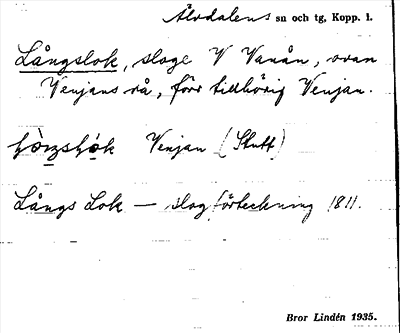 Älvdalens sn och tg, Kopp. l.
Långslok, sloge V Vanån, ovan
Venjans rå, förr tillhörig Venjan.
Venjan (Stutt)
Långs Lok — slogförteckning 1811.
Bror Lindén 1935.